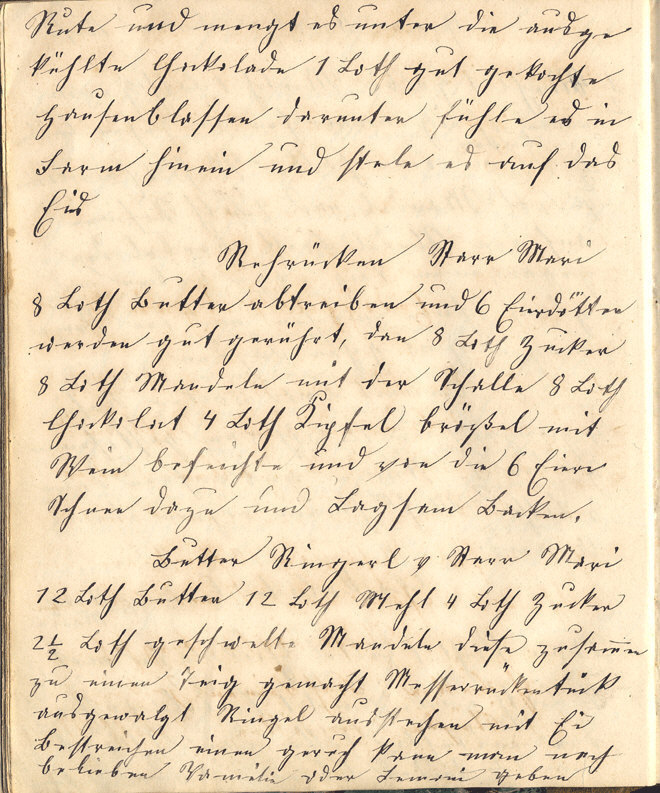 Rute und mengt es unter die ausge
kühlte Chockolade 1 Loth gut gekochte
Hausenblassen darunter fühle es in
Farm hinein und stele es auf das
Eis
Rehrücken Starr Mari
8 Loth Butter abtreiben und 6 Eierdötter
werden gut gerührt, dan 8 Loth Zucker
8 Loth Mandeln mit der Schalle 8 Loth
Chockolat 4 Loth Kipfel brößel mit
Wein befeichte und von die 6 Eiern
Schnee dazu und Lagsam Backen.
Butter Ringerl v Starr Mari
12 Loth Butter 12 Loth Mehl 4 Loth Zucker
2 1/2 Loth geschwelte Mandeln diese zusamen
zu einen Teig gemacht Messerrückentük
ausgewalgt Ringel ausstechen mit Ei
Bestreichen einen geruch kann man nach
belieben Vanielie oder Lemoni geben